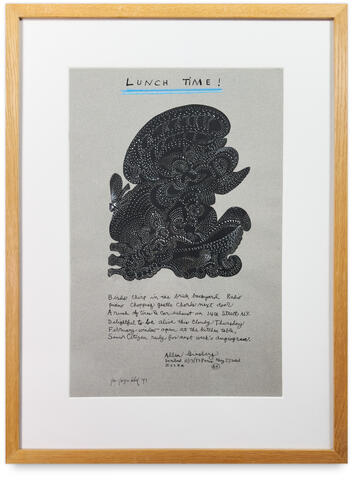 LUNCH TiME!
Birds chirp in the brick backyard Radio
piano Chopping gentle Chords next door
A rush of tires & car exhaust on 14th Street N.Y.
Delightful to be alive this Cloudy Thursday
February window open at the kitchen table,
Senior Citizen ready for next week's angiogram.
Allen Ginsberg